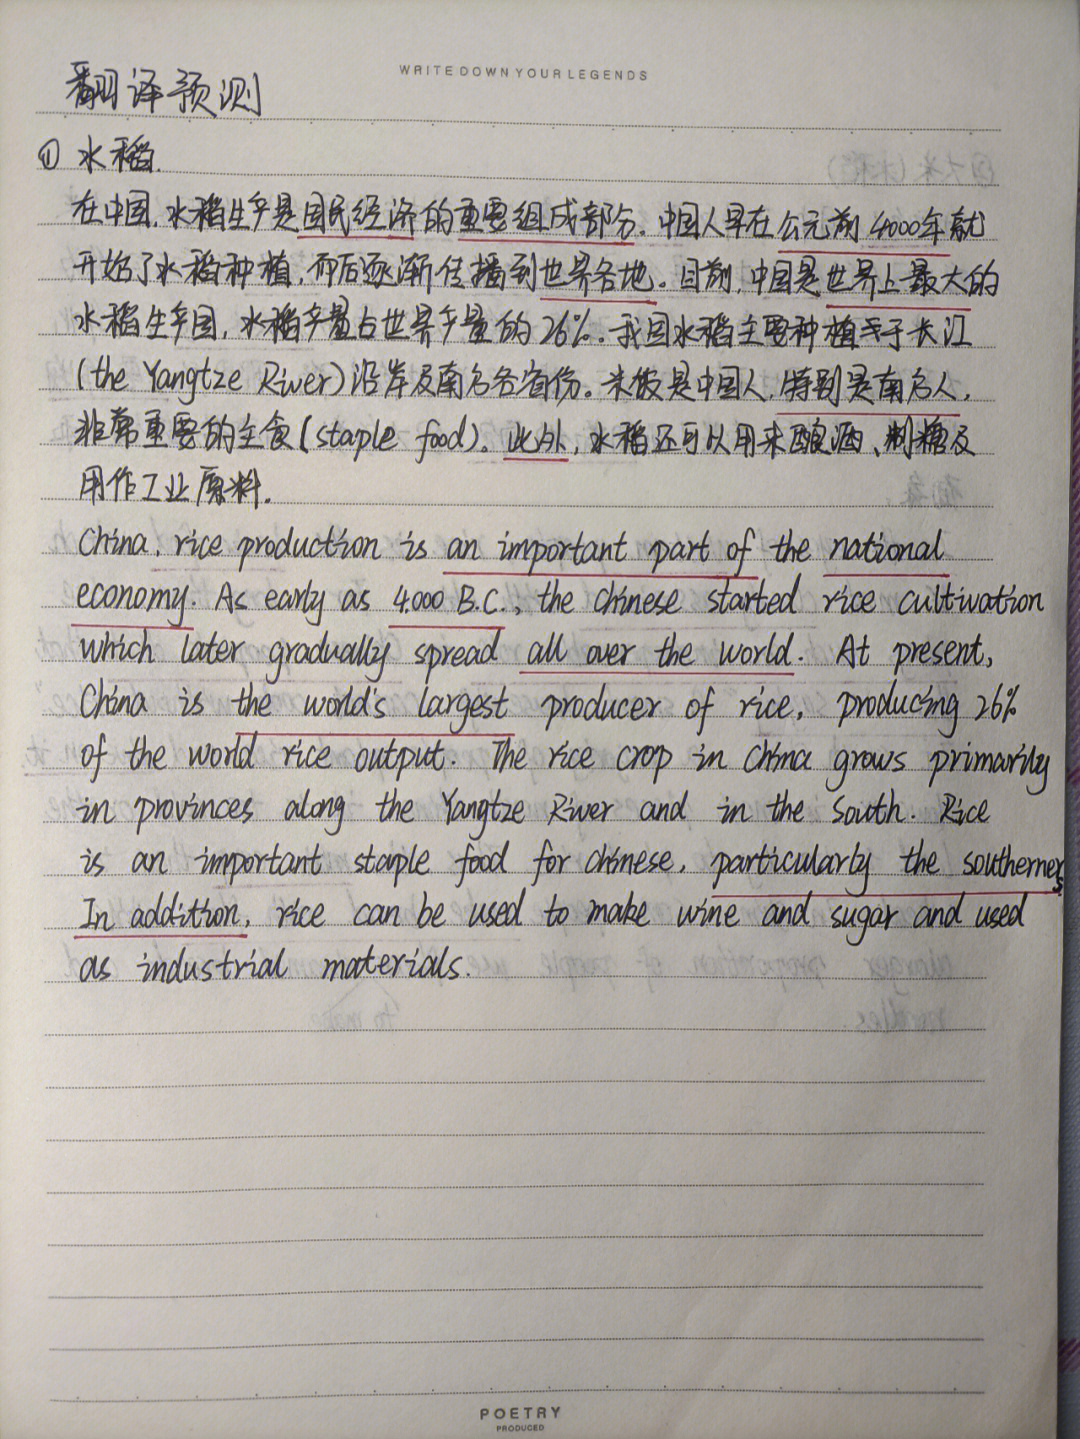 WRITE DOWN YOUR LEGENDS
翻译预测
① 水稻.
在中国,水稻生产是国民经济的重要组成部分。中国人早在公元前4000年就
开始了水稻种植,而后逐渐传播到世界各地。目前,中国是世界上最大的
水稻生产国,水稻产量占世界产量的26%。我国水稻主要种植于长江
(the Yangtze River)沿岸及南方各省份。米饭是中国人,特别是南方人,
非常重要的主食(staple food)。此外,水稻还可以用来酿酒、制糖及
用作工业原料.
China, rice production is an important part of the national
economy. As early as 4.000 B.C., the Chinese started rice cultivation
which later gradually spread all over the world. At present,
China is the world's largest producer of rice, producing 26%
of the world rice output. The rice crop in China grows primarily
in provinces along the Yangtze River and in the South. Rice
is an important staple food for chinese, particularly the southerners
In addition, rice can be used to make wine and sugar and used
as industrial materials.
POETRY
PRODUCED